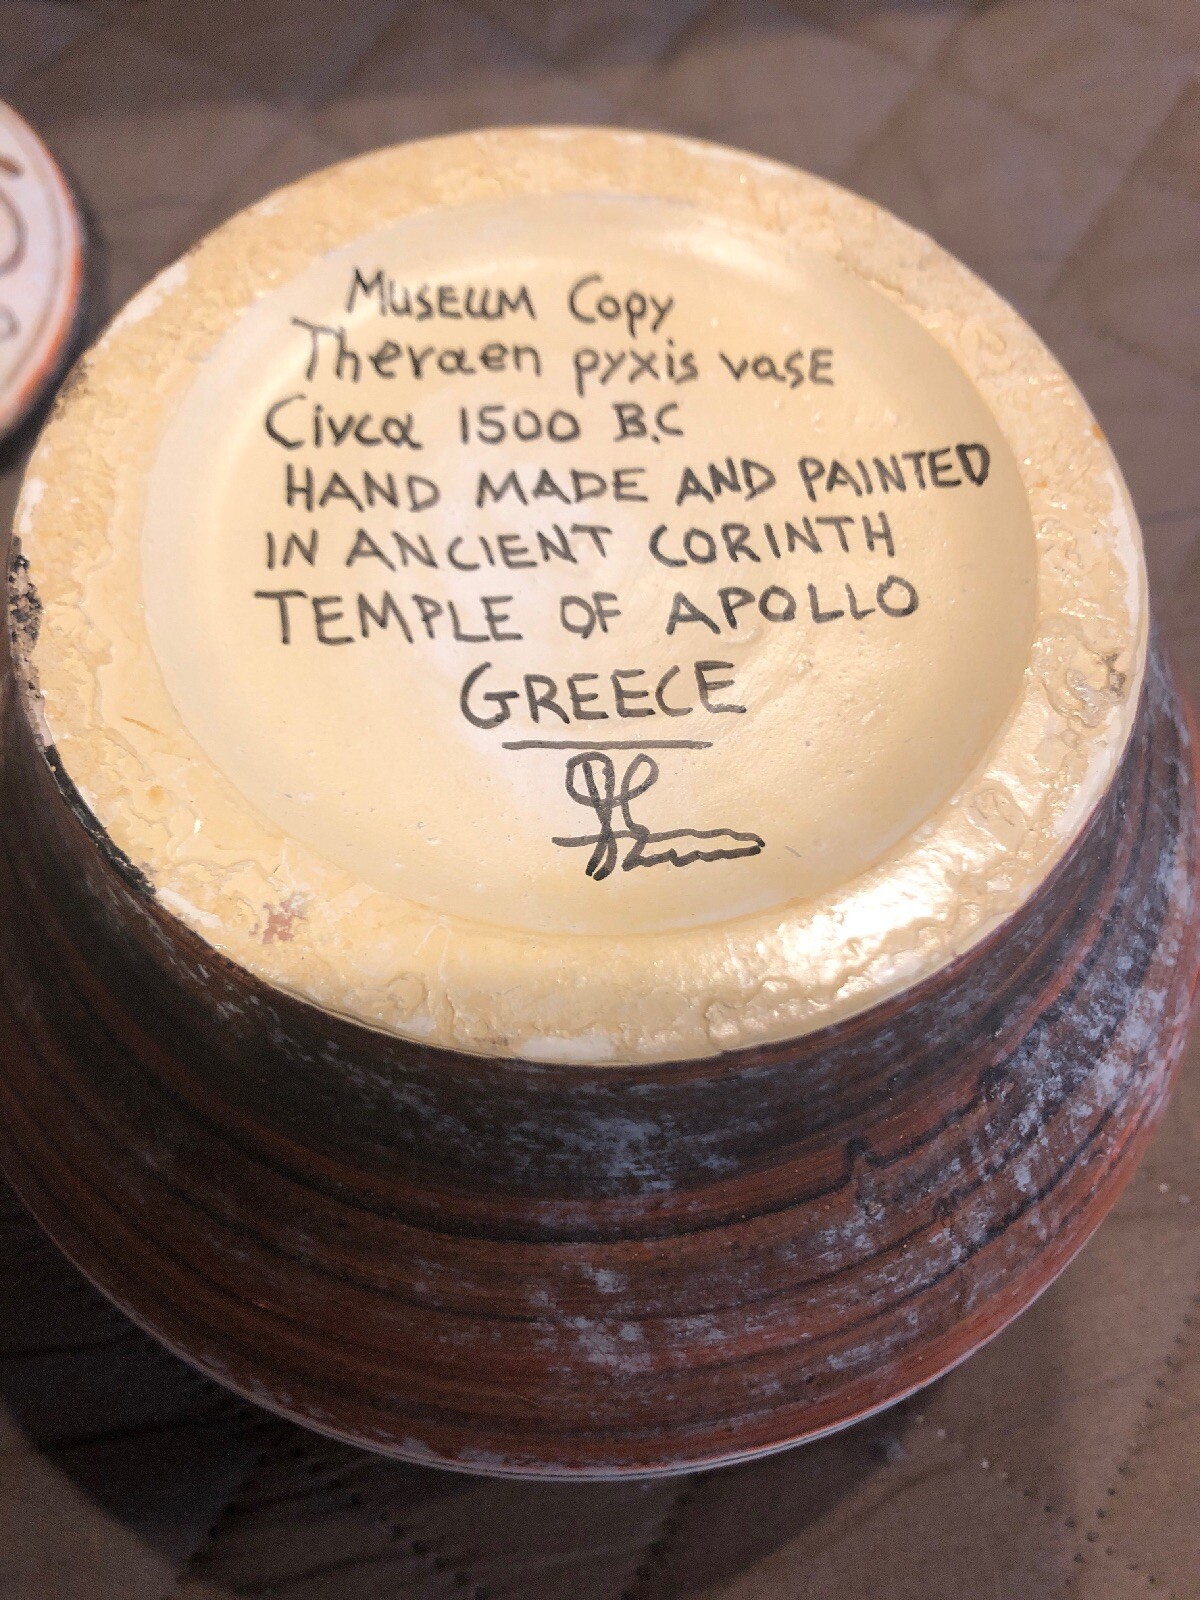 Museum Copy
Theraen pyxis vase
Circa 1500 B.C
HAND MADE AND PAINTED
IN ANCIENT CORINTH
TEMPLE OF APOLLO
GREECE